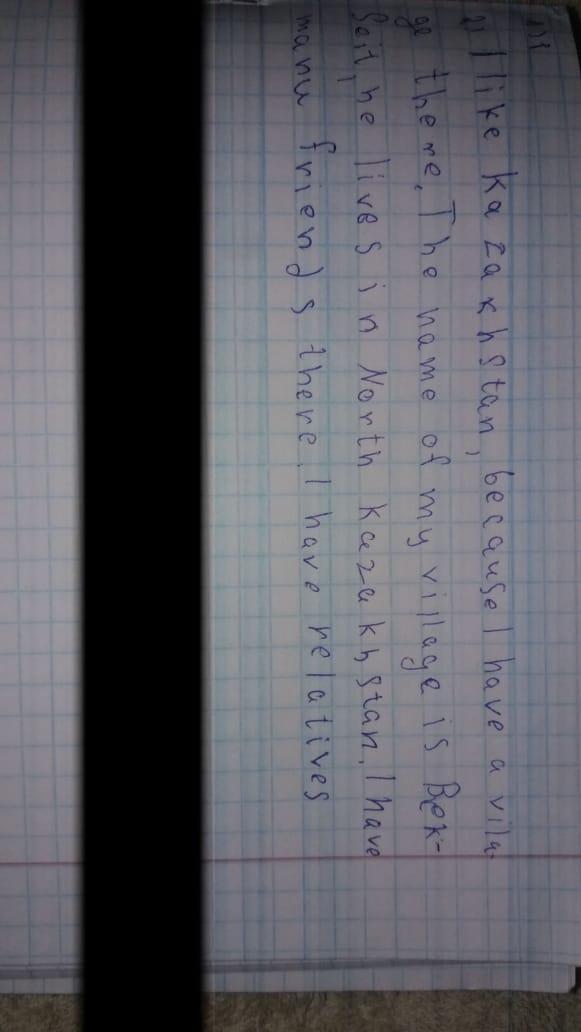 2) I like Kazakhstan, because I have a villa-
ge there. The name of my village is Bek-
Seit, he lives in North Kazakhstan. I have
manu friends there. I have relatives